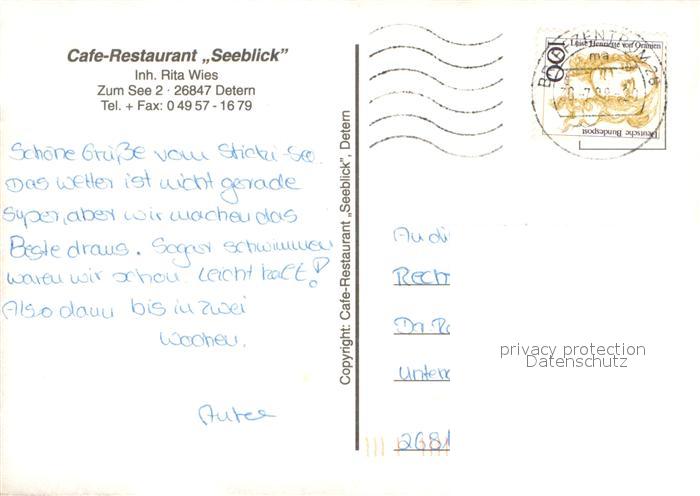 Cafe-Restaurant „Seeblick”
Inh. Rita Wies
Zum See 2 · 26847 Detern
Tel. + Fax: 0 49 57 - 16 79
Schöne Grüße vom Sticki-See.
Das Wetter ist nicht gerade
super, aber wir machen das
Beste draus. Sogar schwimmen
waren wir schon. Leicht kalt!
Also dann bis in zwei
Wochen.
Copyright: Cafe-Restaurant „Seeblick”, Detern
100
Luise Henriette von Oranien
Deutsche Bundespost
BRIEFZENTRUM 26
ma
An di
Rech
Da R
Unter
2681
privacy protection
Datenschutz